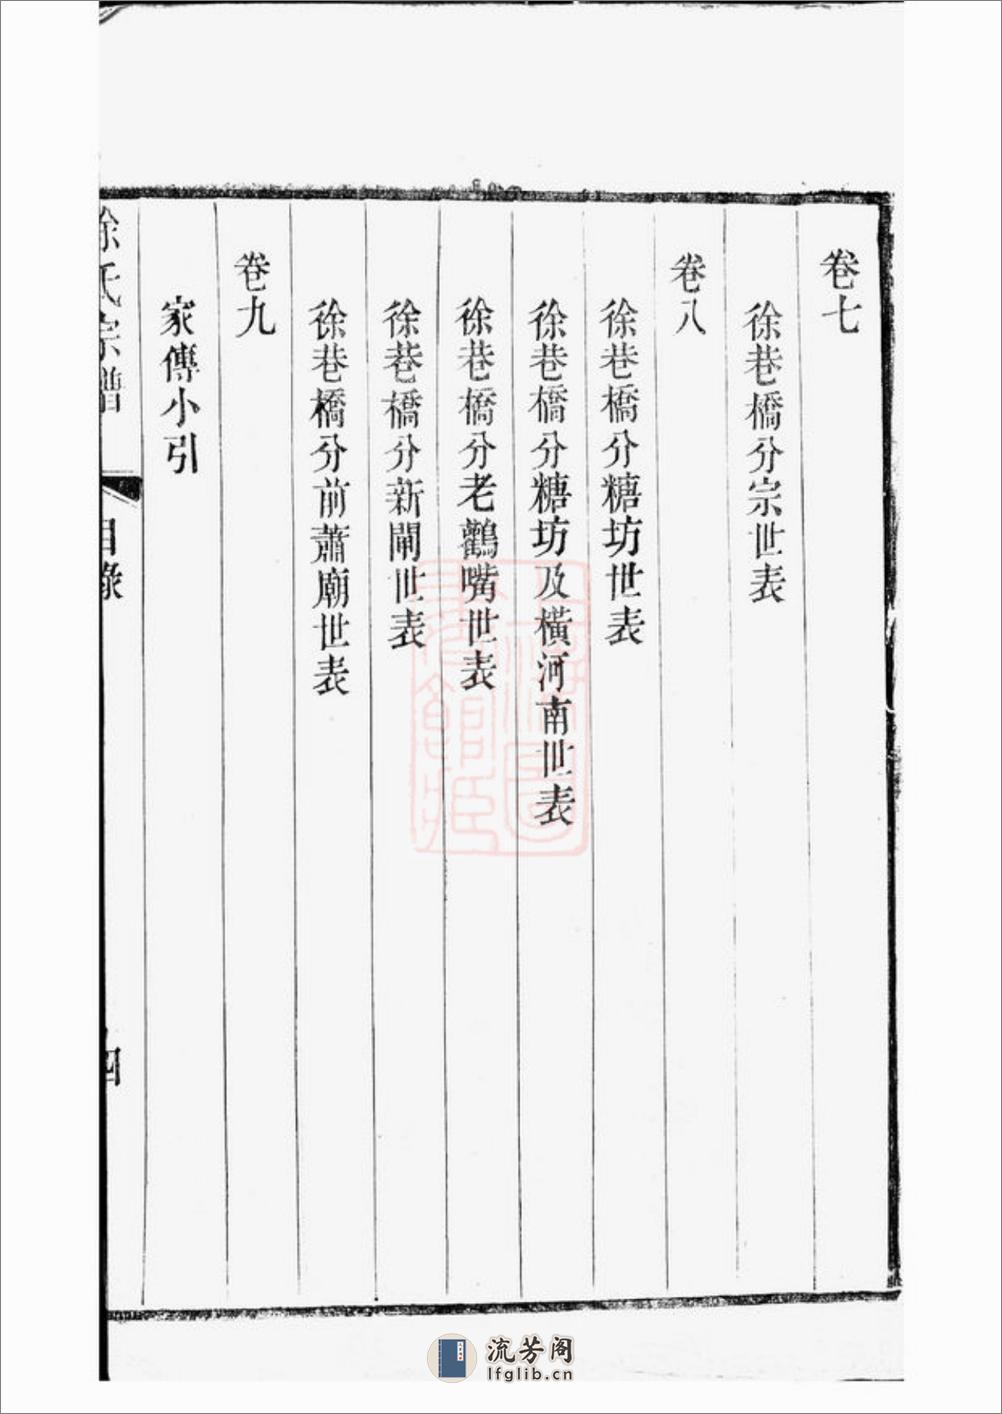 卷七
徐巷橋分宗世表
卷八
徐巷橋分糖坊世表
徐巷橋分糖坊及橫河南世表
徐巷橋分老鸛嘴世表
徐巷橋分新閘世表
徐巷橋分前蕭廟世表
卷九
家傳小引
徐氏宗譜
目錄
四
流芳阁
lfglib.cn